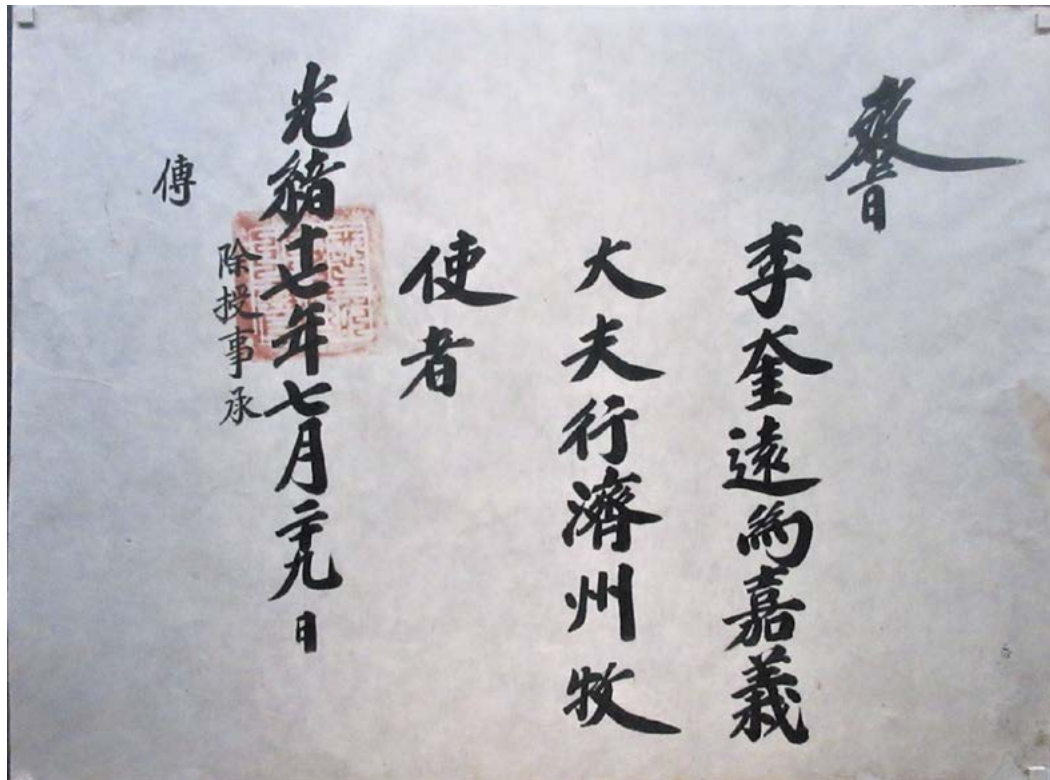 敎旨
李奎遠爲嘉義
大夫行濟州牧
使者
光緒十七年七月二十九日
除授事承
傳